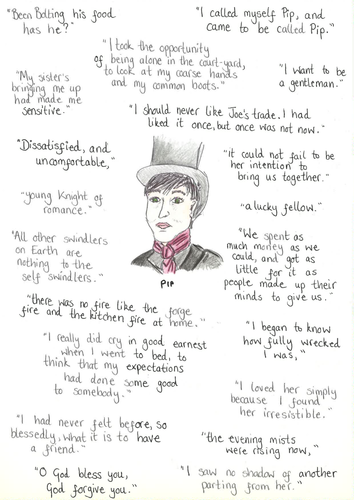 "Been Bolting his food
has he?"
"I called myself Pip, and
came to be called Pip."
"I took the opportunity
of being alone in the court-yard,
to look at my coarse hands
and my common boots."
"My sister's
bringing me up
had made me
sensitive."
"I want to be
a gentleman."
"I should never like Joe's trade. I had
liked it once, but once was not now."
"Dissatisfied, and
uncomfortable,"
"it could not fail to be
her intention to
bring us together."
"young Knight of
romance."
"a lucky fellow."
"All other swindlers
on Earth are
nothing to the
self swindlers."
"We spent as
much money as we
could, and got as
little for it as
people made up their
minds to give us."
PIP
"there was no fire like the forge
fire and the kitchen fire at home."
"I began to know
how fully wrecked
I was,"
"I really did cry in good earnest
when I went to bed, to
think that my expectations
had done some good
to somebody."
"I loved her simply
because I found
her irresistible."
"I had never felt before, so
blessedly, what it is to have
a friend."
"the evening mists
were rising now,"
"O God bless you,
God forgive you."
"I saw no shadow of another
parting from her."